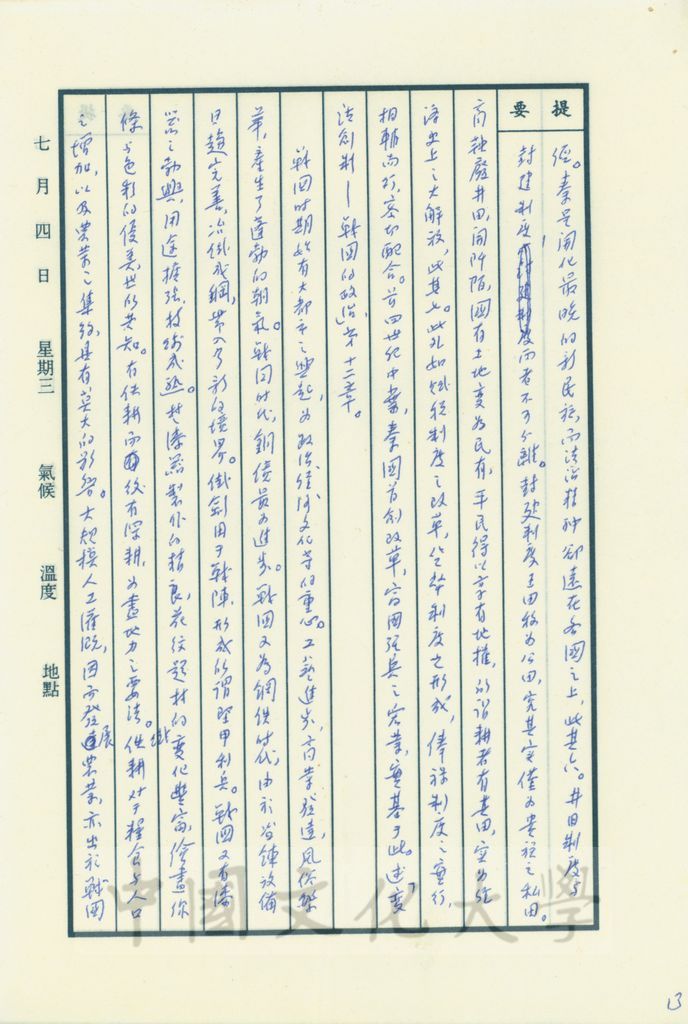 提要
從。秦是開化最晚的新民族，而法治精神却遠在各國之上，此其六。井田制度与
封建制度，兩者不可分離。封建制度下田牧为公田，究其实僅为貴族之私田。
商鞅廢井田，開阡陌，國有土地变为民有，平民得以享有地權，所謂耕者有其田，实为經
濟史上之大解放，此其七。此外如賦稅制度之改革，貨幣制度之形成，俸祿制度之實行，
相輔而行，密切配合。前四世紀中葉，秦國首創改革，富國强兵之宏業，實基于此。述「變
法創制—戰國的政治」第十二章。
戰國时期始有大都市之興起，为政治經济文化等的重心。工藝進步，商業發達，風俗繁
華，產生了蓬勃的朝氣。戰國时代，銅績最为進步。戰國又为銅鉄时代，由於冶鍊設備
日趨完善，冶鉄成鋼，帶入了新的境界。鉄劍用于戰陣，形成所謂堅甲利兵。戰國又有漆
器之勃興，用途擴張，技術成熟。楚漆器製作的精良，花紋題材的变化豐富，繪畫線
條与色彩的優美，世所共知。有鉄耕而後有深耕，为盡地力之要法。鉄耕对于糧食与人口
之增加，以及農業之集約，具有莫大的影響。大規模人工灌溉，因而發展農業，亦出於戰國
七月四日 星期三 氣候 溫度 地點
中國文化大學
13